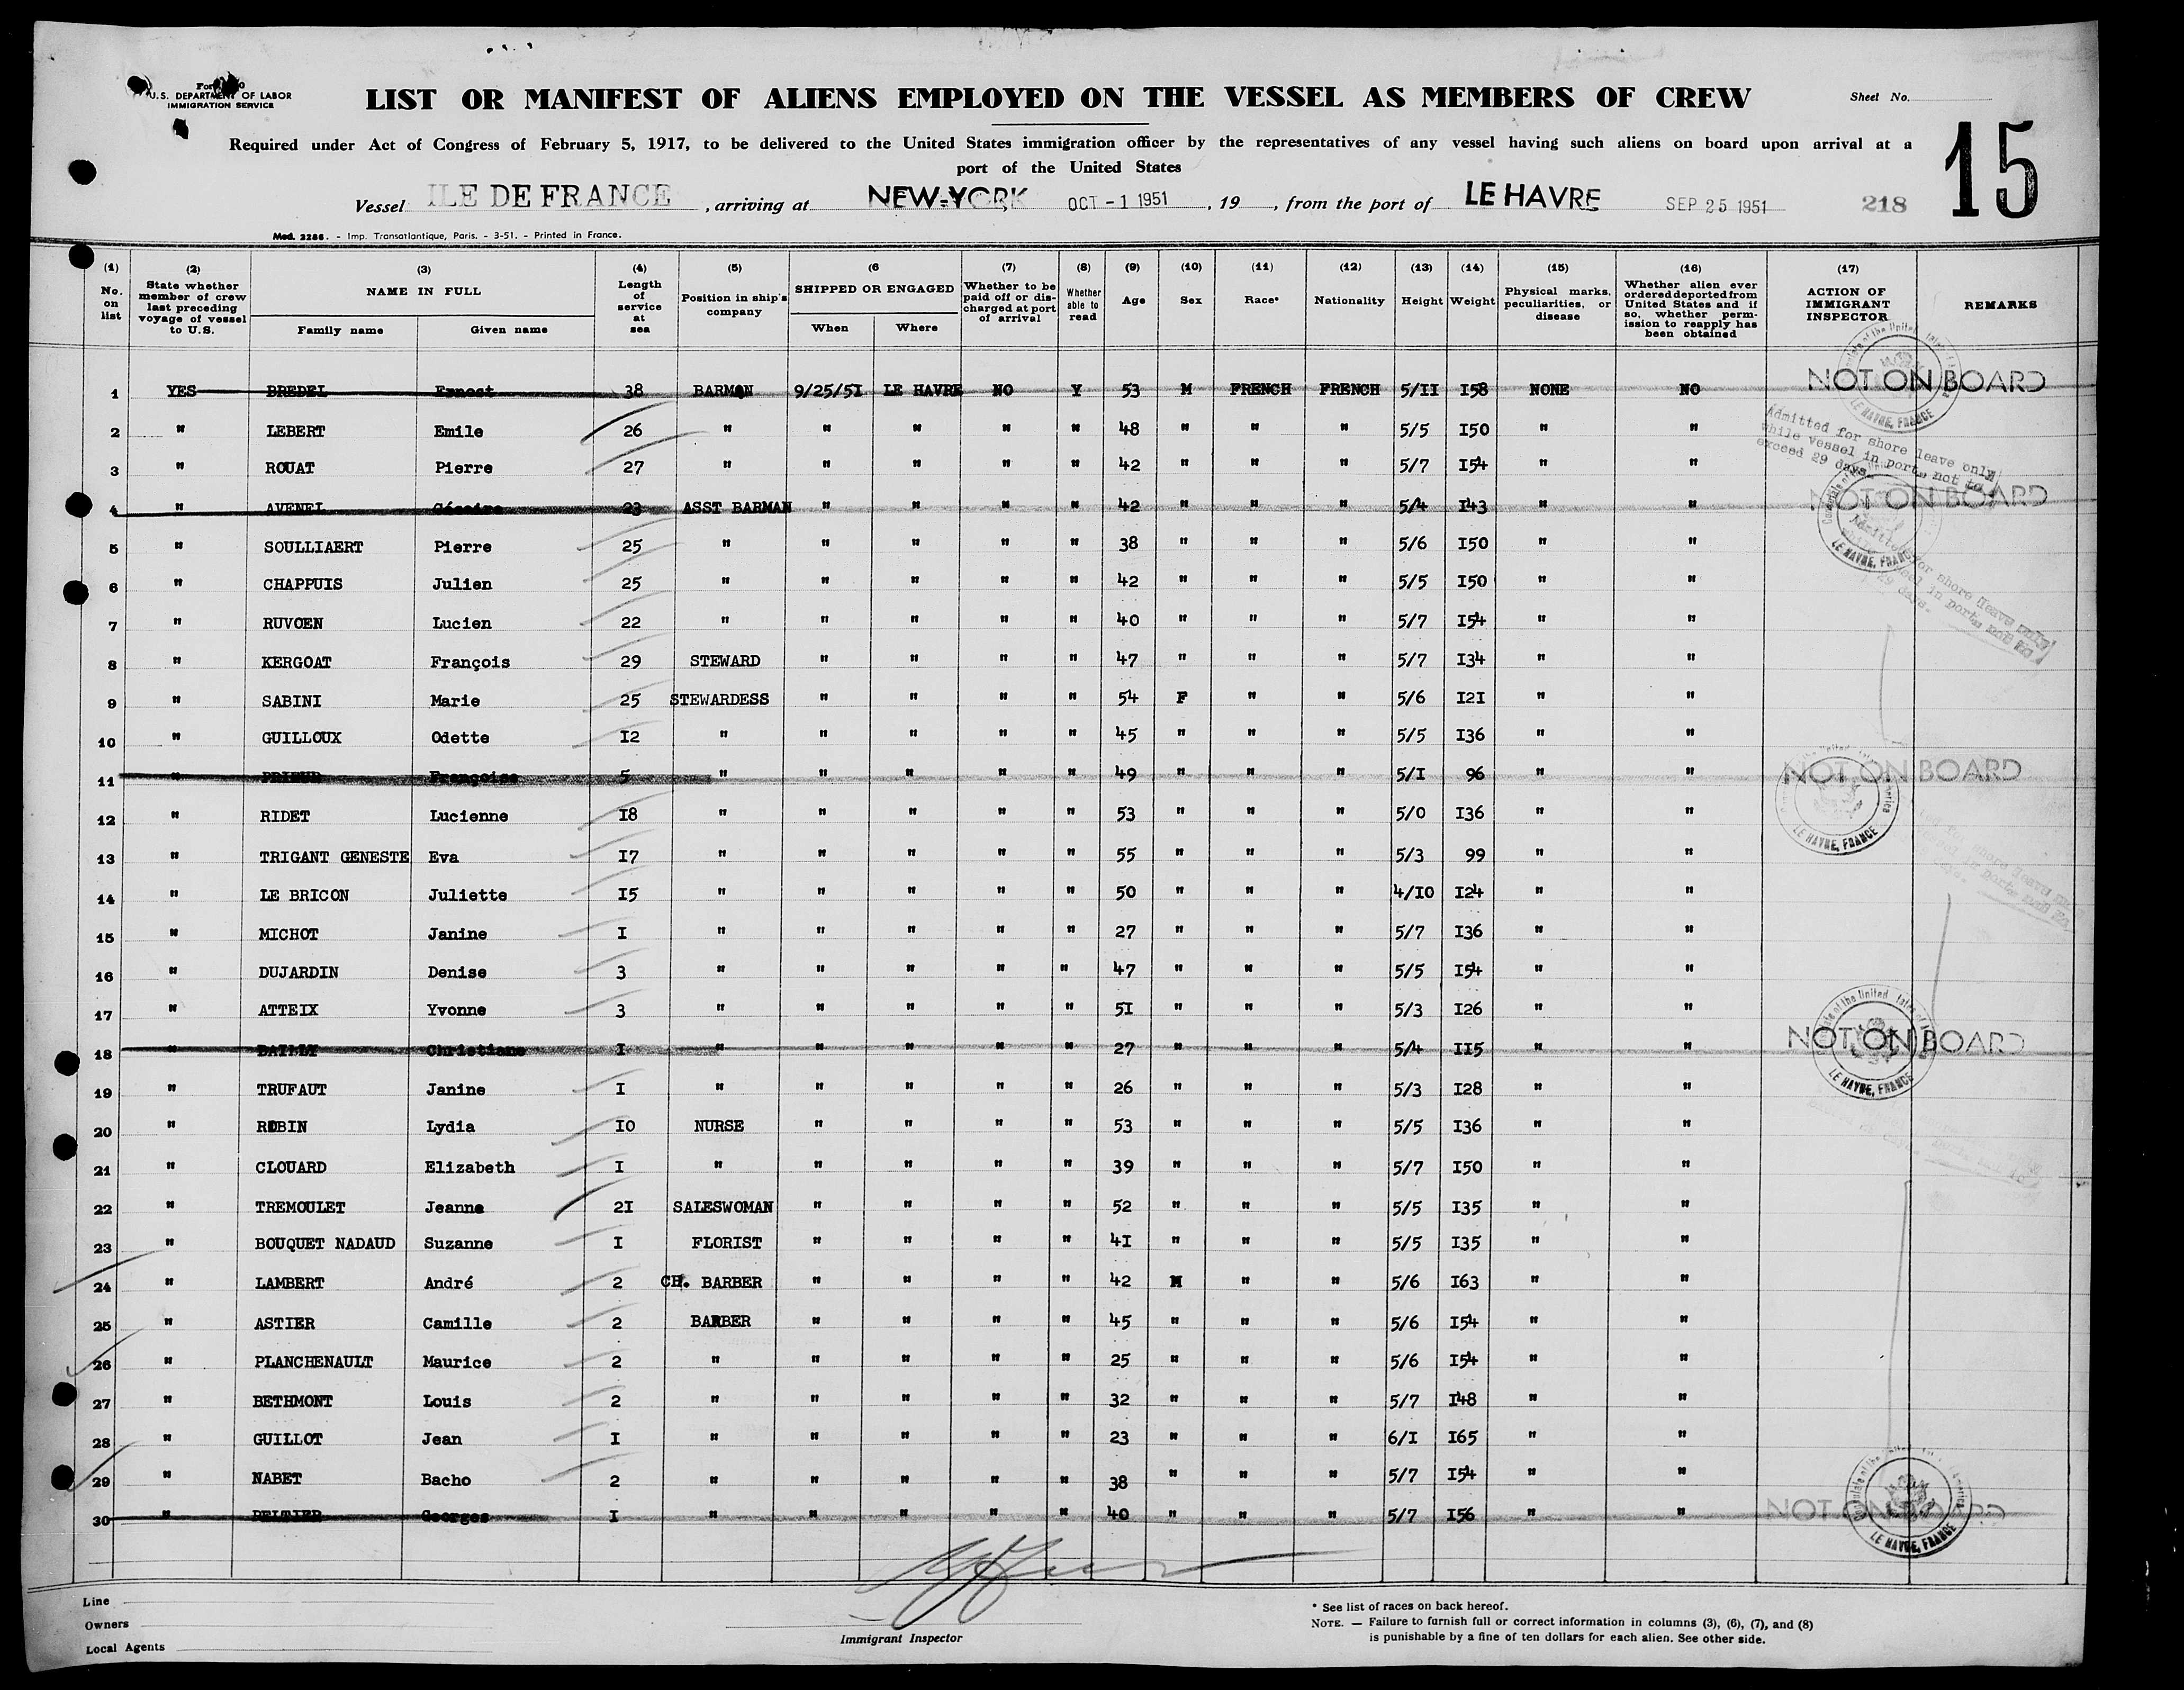 U.S. DEPARTMENT OF LABOR
IMMIGRATION SERVICE
LIST OR MANIFEST OF ALIENS EMPLOYED ON THE VESSEL AS MEMBERS OF CREW
Sheet No.
15
Required under Act of Congress of February 5, 1917, to be delivered to the United States immigration officer by the representatives of any vessel having such aliens on board upon arrival at a
port of the United States
Vessel ILE DE FRANCE, arriving at NEW-YORK OCT -1 1951, 19, from the port of LE HAVRE SEP 25 1951 218
Mod. 2286. - Imp. Transatlantique, Paris. - 3-51. - Printed in France.
(1) No. on list
(2) State whether member of crew last preceding voyage of vessel to U.S.
(3) NAME IN FULL Family name Given name
(4) Length of service at sea
(5) Position in ship's company
(6 SHIPPED OR ENGAGED When Where
(7) Whether to be paid off or discharged at port of arrival
(8) Whether able to read
(9) Age
(10) Sex
(11) Race*
(12) Nationality
(13) Height
(14) Weight
(15) Physical marks, peculiarities, or disease
(16) Whether alien ever ordered deported from United States and if so, whether permission to reapply has been obtained
(17) ACTION OF IMMIGRANT INSPECTOR
REMARKS
1 YES BREDEL Ernest 38 BARMAN 9/25/5I LE HAVRE NO Y 53 M FRENCH FRENCH 5/II I58 NONE NO NOT ON BOARD
2 " LEBERT Emile 26 " " " " " 48 " " " 5/5 I50 " "
3 " ROUAT Pierre 27 " " " " " 42 " " " 5/7 I54 " "
Admitted for shore leave only
while vessel in port, not to
exceed 29 days.
4 " AVENEL Césaire 23 ASST BARMAN " " " " 42 " " " 5/4 I43 " " NOT ON BOARD
5 " SOULLIAERT Pierre 25 " " " " " 38 " " " 5/6 I50 " "
6 " CHAPPUIS Julien 25 " " " " " 42 " " " 5/5 I50 " "
7 " RUVOEN Lucien 22 " " " " " 40 " " " 5/7 I54 " "
8 " KERGOAT François 29 STEWARD " " " " 47 " " " 5/7 I34 " "
9 " SABINI Marie 25 STEWARDESS " " " " 54 F " " 5/6 I2I " "
10 " GUILLOUX Odette I2 " " " " " 45 " " " 5/5 I36 " "
11 " PRIEUR Françoise 5 " " " " " 49 " " " 5/I 96 " " NOT ON BOARD
12 " RIDET Lucienne I8 " " " " " 53 " " " 5/0 I36 " "
LE HAVRE, FRANCE
13 " TRIGANT GENESTE Eva I7 " " " " " 55 " " " 5/3 99 " "
14 " LE BRICON Juliette I5 " " " " " 50 " " " 4/I0 I24 " "
15 " MICHOT Janine I " " " " " 27 " " " 5/7 I36 " "
16 " DUJARDIN Denise 3 " " " " " 47 " " " 5/5 I54 " "
17 " ATTEIX Yvonne 3 " " " " " 5I " " " 5/3 I26 " "
18 " BAILLY Christiane I " " " " " 27 " " " 5/4 II5 " " NOT ON BOARD
19 " TRUFAUT Janine I " " " " " 26 " " " 5/3 I28 " "
LE HAVRE, FRANCE
20 " ROBIN Lydia I0 NURSE " " " " 53 " " " 5/5 I36 " "
21 " CLOUARD Elizabeth I " " " " " 39 " " " 5/7 I50 " "
22 " TREMOULET Jeanne 2I SALESWOMAN " " " " 52 " " " 5/5 I35 " "
23 " BOUQUET NADAUD Suzanne I FLORIST " " " " 4I " " " 5/5 I35 " "
24 " LAMBERT André 2 CH. BARBER " " " " 42 M " " 5/6 I63 " "
25 " ASTIER Camille 2 BARBER " " " " 45 " " " 5/6 I54 " "
26 " PLANCHENAULT Maurice 2 " " " " " 25 " " " 5/6 I54 " "
27 " BETHMONT Louis 2 " " " " " 32 " " " 5/7 I48 " "
28 " GUILLOT Jean I " " " " " 23 " " " 6/I I65 " "
29 " NABET Bacho 2 " " " " " 38 " " " 5/7 I54 " "
30 " PELTIER Georges I " " " " " 40 " " " 5/7 I56 " " NOT ON BOARD
LE HAVRE, FRANCE
Line
Owners
Local Agents
Immigrant Inspector
* See list of races on back hereof.
NOTE. — Failure to furnish full or correct information in columns (3), (6), (7), and (8)
is punishable by a fine of ten dollars for each alien. See other side.